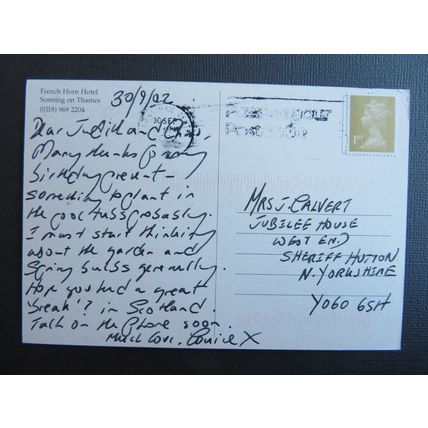 French Horn Hotel
Sonning on Thames
(0118) 969 2204
30/9/02
Dear Judith and
Many thanks for my
birthday present -
something to plant in
the pool tubs probably.
I must start thinking
about the garden and
Spring bulbs generally.
Hope you had a great
'break'? in Scotland.
Talk on the phone soon.
Much love, X
30 SEP
1ST
MRS J. CALVERT
JUBILEE HOUSE
WEST END
SHERIFF HUTTON
N. YORKSHIRE
YO60 6SH